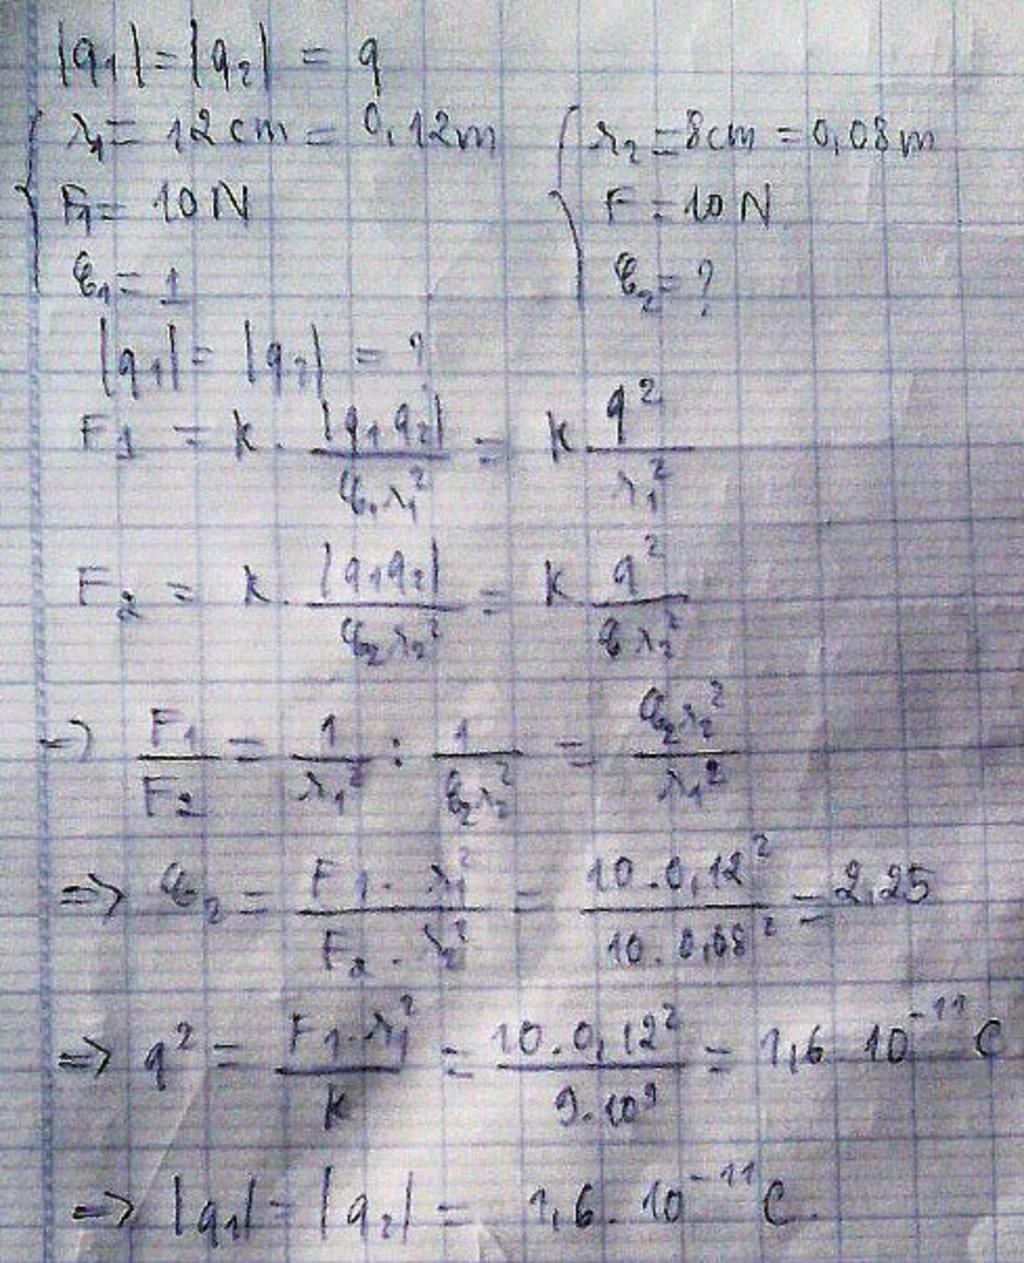 |q₁| = |q₂| = q
r₁ = 12cm = 0,12m r₂ = 8cm = 0,08m
F₁ = 10N F = 10N
ε₁ = 1 ε₂ = ?
|q₁| = |q₂| = ?
F₁ = k . |q₁q₂| / ε₁r₁² = k q² / r₁²
F₂ = k . |q₁q₂| / ε₂r₂² = k q² / εr₂²
=> F₁ / F₂ = 1 / r₁² : 1 / ε₂r₂² = ε₂r₂² / r₁²
=> ε₂ = F₁ . r₁² / F₂ . r₂² = 10 . 0,12² / 10 . 0,08² = 2,25
=> q² = F₁ . r₁² / k = 10 . 0,12² / 9 . 10⁹ = 1,6 10⁻¹¹ C
=> |q₁| = |q₂| = 1,6 . 10⁻¹¹ C.